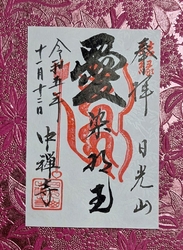 拝 日光山
愛染明王
中禅寺
令和五年
十一月十二日